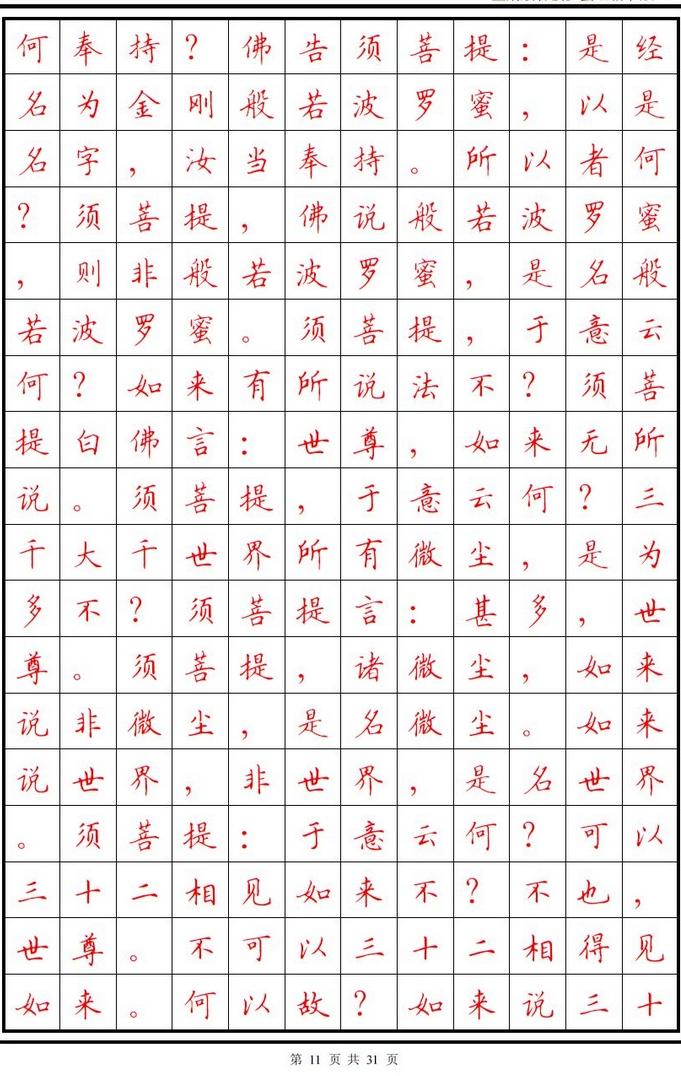 何奉持？佛告须菩提：是经
名为金刚般若波罗蜜，以是
名字，汝当奉持。所以者何
？须菩提，佛说般若波罗蜜
，则非般若波罗蜜，是名般
若波罗蜜。须菩提，于意云
何？如来有所说法不？须菩
提白佛言：世尊，如来无所
说。须菩提，于意云何？三
千大千世界所有微尘，是为
多不？须菩提言：甚多，世
尊。须菩提，诸微尘，如来
说非微尘，是名微尘。如来
说世界，非世界，是名世界
。须菩提：于意云何？可以
三十二相见如来不？不也，
世尊。不可以三十二相得见
如来。何以故？如来说三十
第 11 页 共 31 页